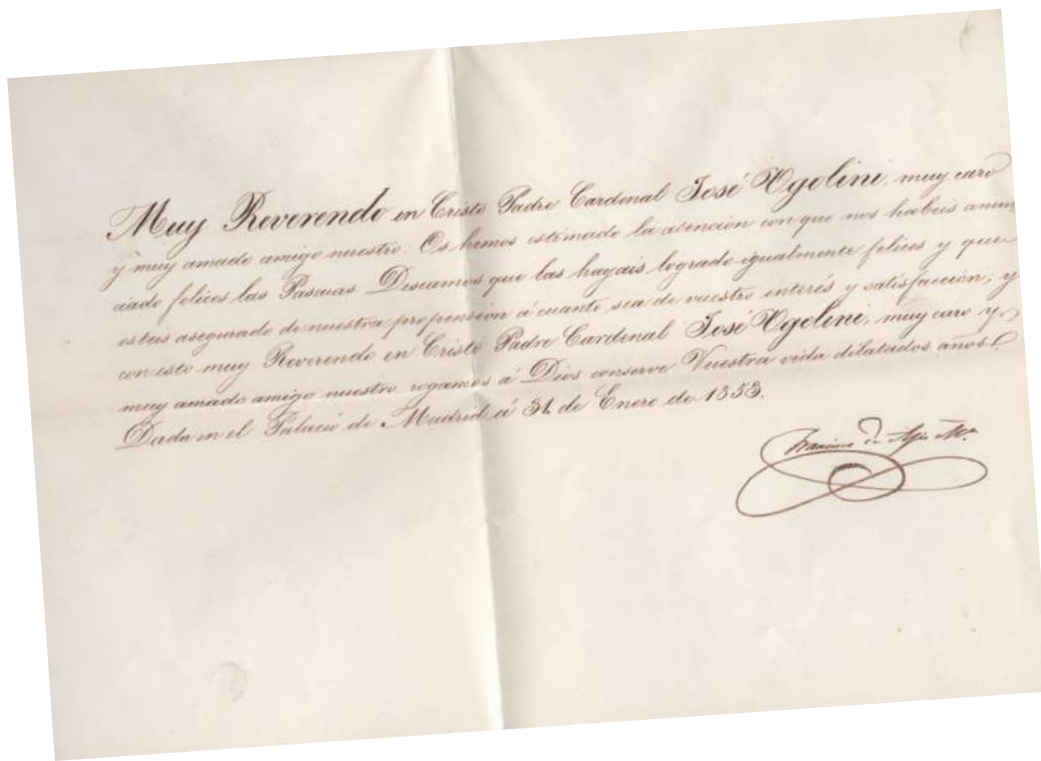 Muy Reverendo en Cristo Padre Cardenal José Ugolini, muy caro
y muy amado amigo nuestro: Os hemos estimado la atencion con que nos habeis anun
ciado felices las Pascuas. Deseamos que las hayais logrado igualmente felices y que
esteis asegurado de nuestra propension á cuanto sea de vuestro interés y satisfacción; y
con esto muy Reverendo en Cristo Padre Cardenal José Ugolini, muy caro y
muy amado amigo nuestro, rogamos á Dios conserve Vuestra vida dilatados años.
Dada en el Palacio de Madrid á 31 de Enero de 1853.
Francisco de Asis Mª